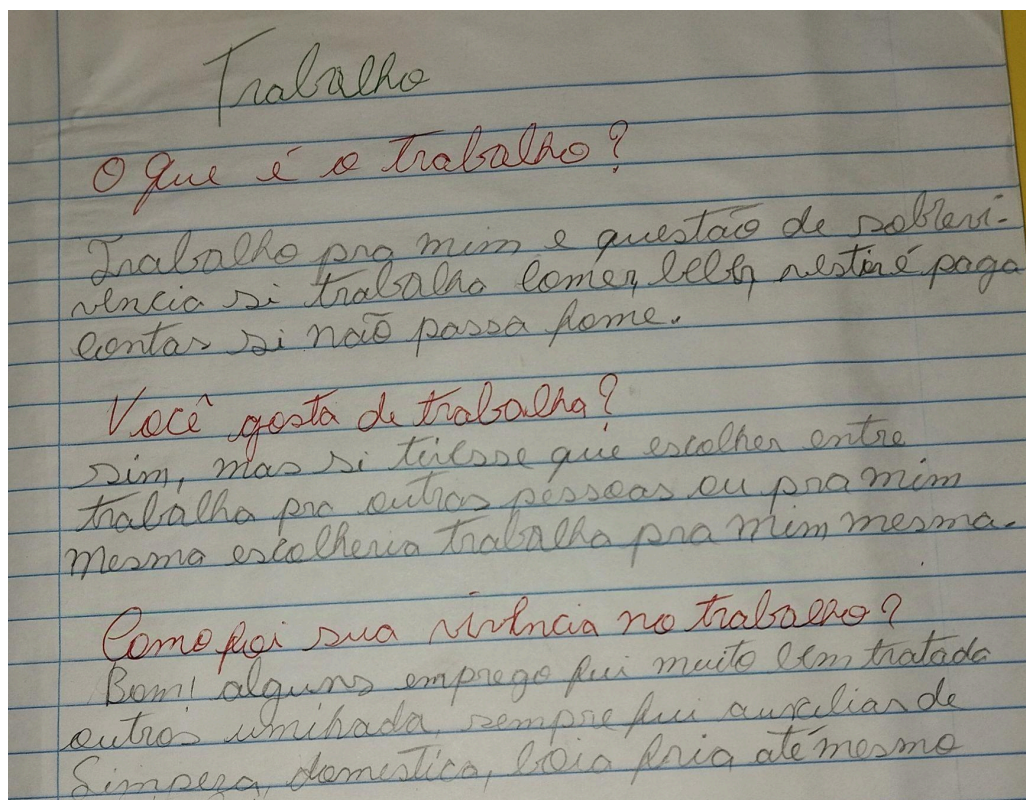 Trabalho
O que é o trabalho?
Trabalho pra mim e questão de sobrevi-
vencia si trabalha comer, beber, vestir é paga
contas si não passa fome.
Você gosta de trabalha?
sim, mas si tivesse que escolher entre
trabalha pra outras pessoas ou pra mim
mesma escolheria trabalha pra mim mesma.
Como foi sua vivência no trabalho?
Bom! alguns emprego fui muito bem tratada
outros umihada, sempre fui auxiliar de
Limpeza, domestica, boia fria até mesmo